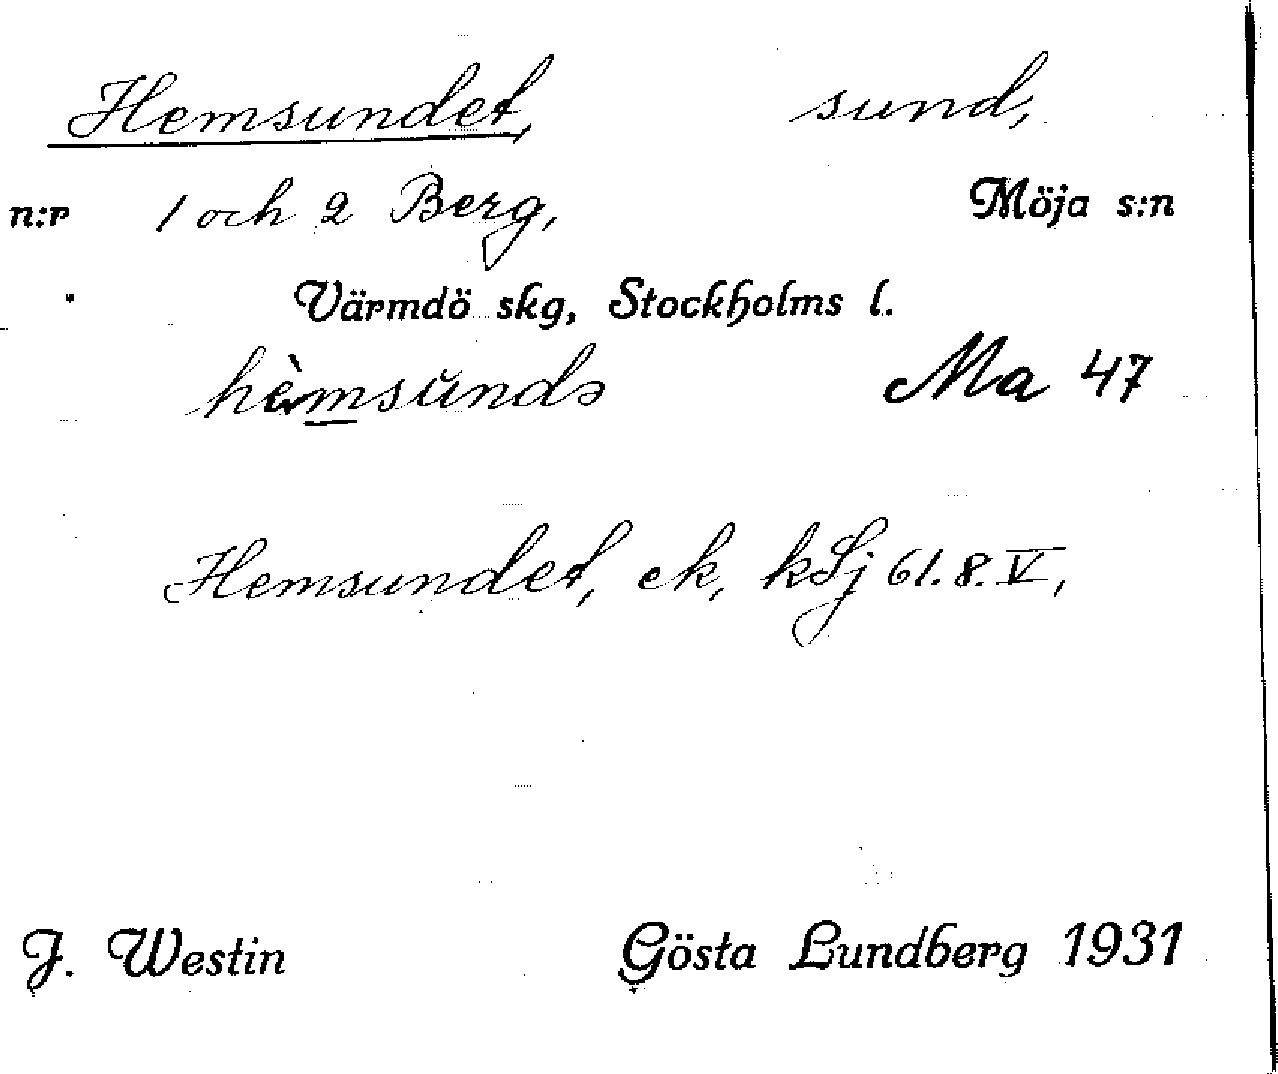 Hemsundet, sund,
n:r 1 och 2 Berg, Möja s:n
Värmdö skg, Stockholms l.
hèmsŭndə Ma 47
Hemsundet, ek, kSj 61.8.V,
J. Westin Gösta Lundberg 1931